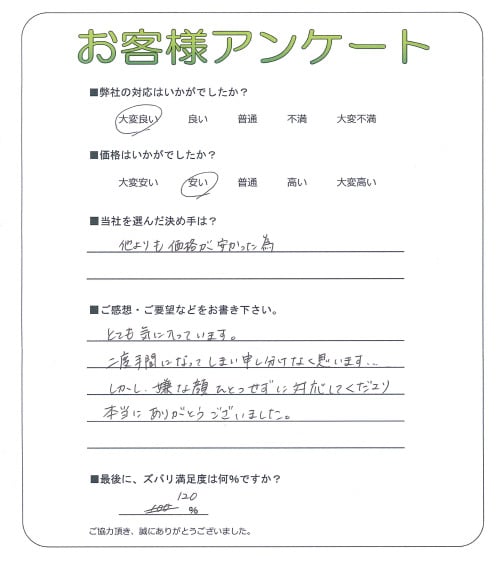 お客様アンケート
■弊社の対応はいかがでしたか？
大変良い 良い 普通 不満 大変不満
■価格はいかがでしたか？
大変安い 安い 普通 高い 大変高い
■当社を選んだ決め手は？
他よりも価格が安かった為
■ご感想・ご要望などをお書き下さい。
とても気に入っています。
二度手間になってしまい申し分けなく思います…
しかし、嫌な顔ひとつせずに対応してくださり
本当にありがとうございました。
■最後に、ズバリ満足度は何%ですか？
120
100 %
ご協力頂き、誠にありがとうございました。